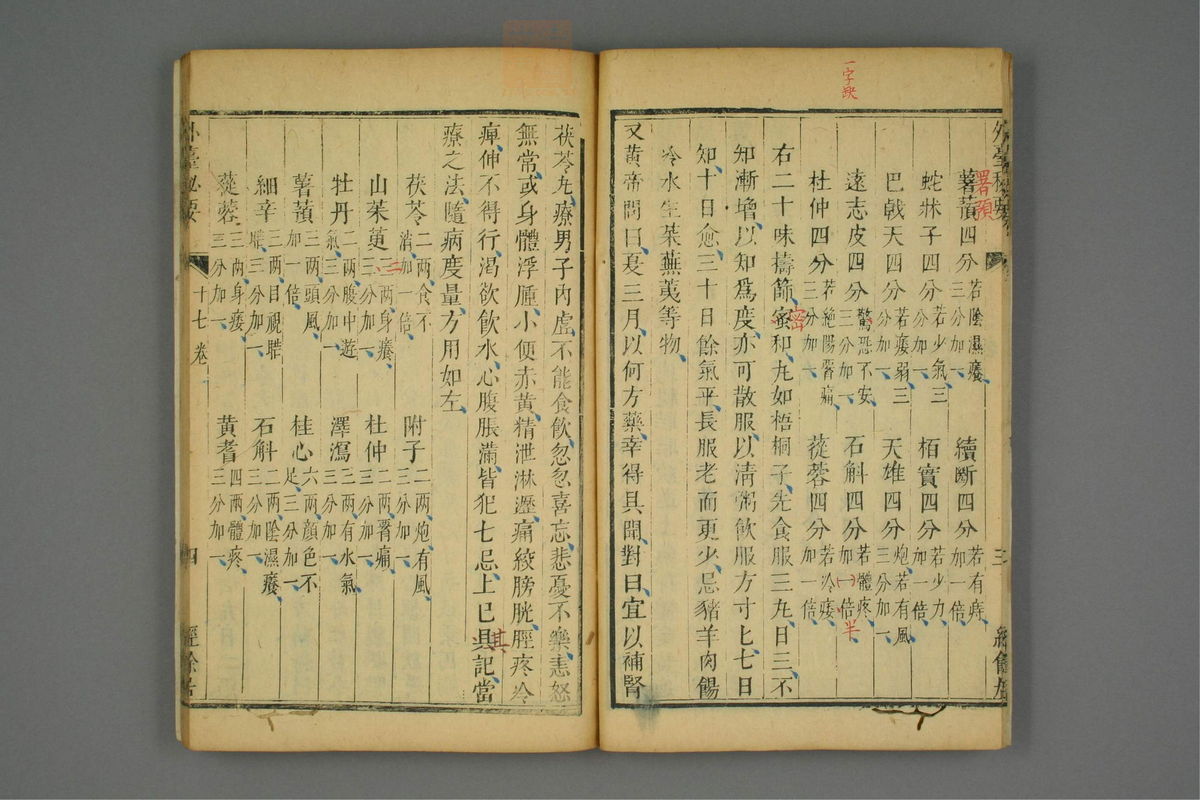 一字缺
外臺秘要
署預
薯蕷四分若陰濕癢三分加一
續斷四分若有痔加一倍
蛇牀子四分若少氣三分加一
栢實四分若少力加一倍
巴戟天四分若痿弱三分加一
天雄四分炮若有風三分加一
遠志皮四分驚恐不安三分加一
石斛四分若體疼加一倍
半
杜仲四分若絶陽腎痛三分加一
蓯蓉四分若冷痿加一倍
右二十味擣篩蜜和丸如梧桐子先食服三丸日三不
密
知漸增以知爲度亦可散服以清粥飲服方寸匕七日
知十日愈三十日餘氣平長服老而更少忌豬羊肉餳
冷水生菜蕪荑等物
又黃帝問曰夏三月以何方藥幸得具聞對曰宜以補腎
茯苓丸療男子內虛不能食飲忽忽喜忘悲憂不樂恚怒
無常或身體浮腫小便赤黃精泄淋瀝痛絞膀胱脛疼冷
痺伸不得行渴欲飲水心腹脹滿皆犯七忌上已具記當
其
療之法隨病度量方用如左
茯苓二兩食不消加一倍
附子二兩炮有風三分加一
山茱萸三兩身癢三分加一
杜仲二兩腎痛三分加一
牡丹二兩腹中遊氣三分加一
澤瀉三兩有水氣三分加一
薯蕷三兩頭風加一倍
桂心六兩顏色不足三分加一
細辛三兩目視䀮䀮三分加一
石斛二兩陰濕癢三分加一
蓯蓉三兩身痿三分加一
黃耆四兩體疼三分加一
外臺秘要
十七卷
四
經餘居